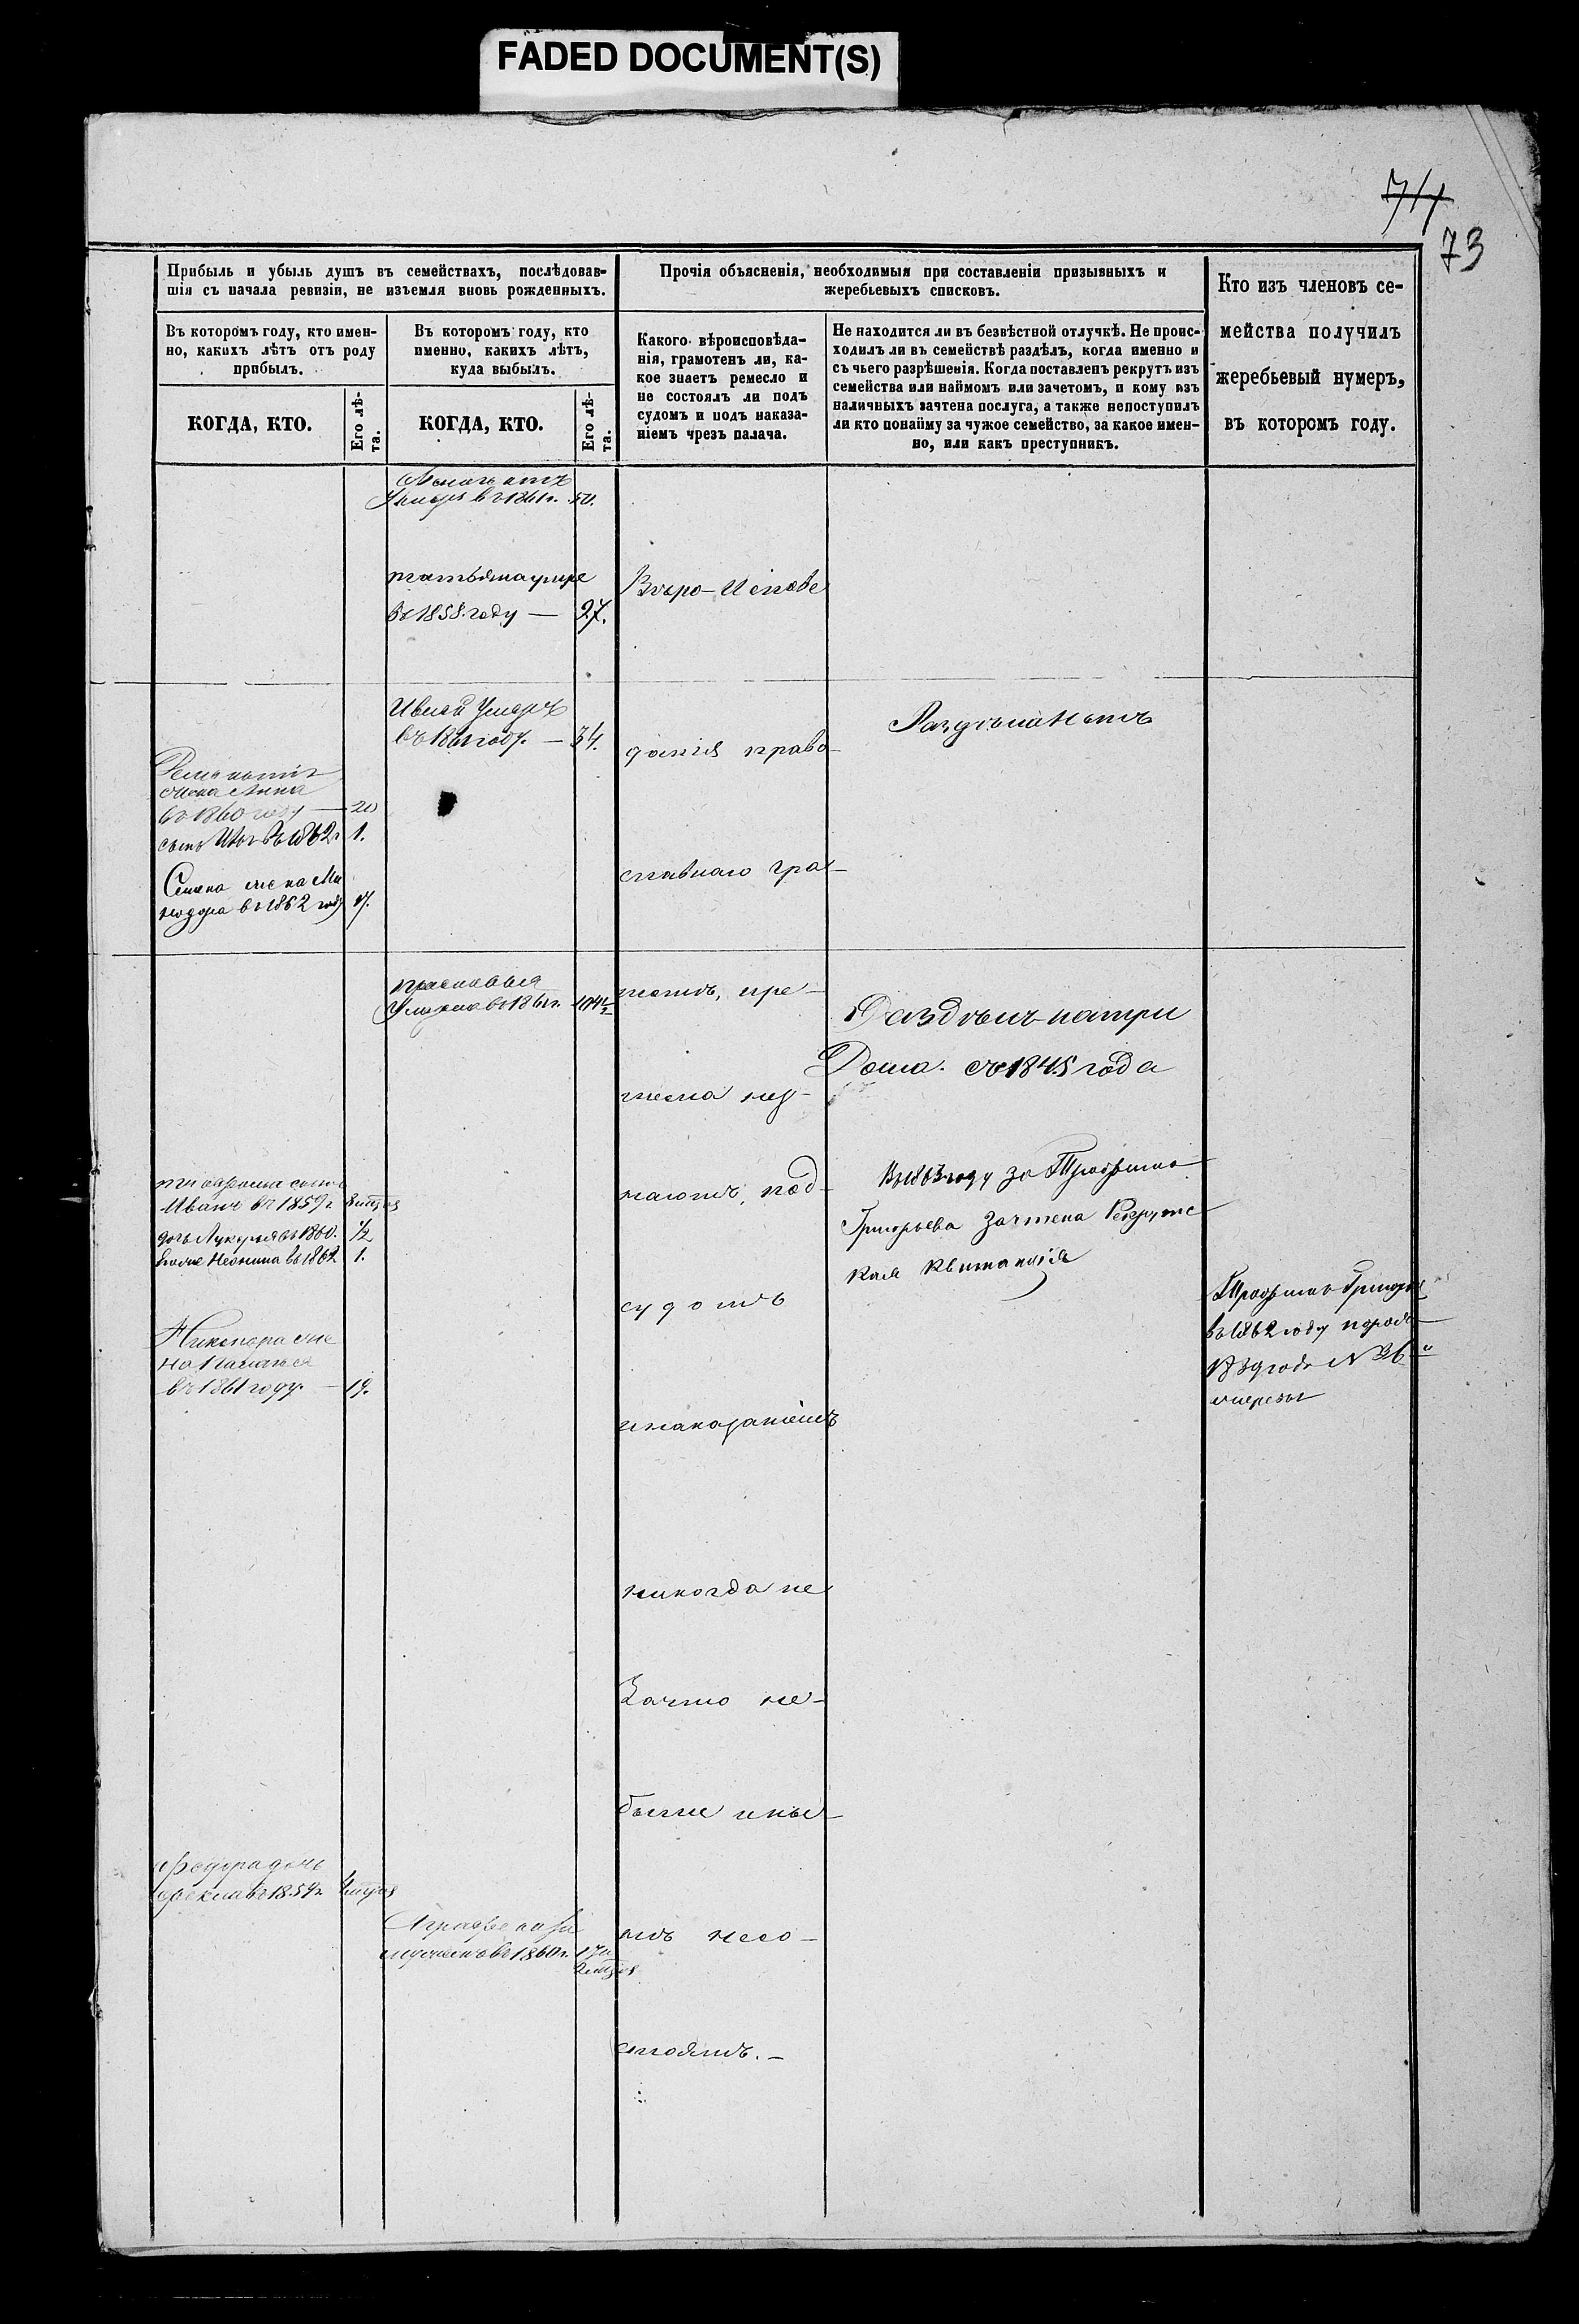 FADED DOCUMENT(S)
73
Прибыль и убыль душъ въ семействахъ, послѣдовав-
шія съ начала ревизіи, не изъемля вновь рожденныхъ.
Прочія объясненія, необходимыя при составленіи призывныхъ и
жеребьевыхъ списковъ.
Кто изъ членовъ се-
мейства получилъ
жеребьевый нумеръ,
въ которомъ году.
Въ которомъ году, кто имен-
но, какихъ лѣтъ отъ роду
прибылъ.
Въ которомъ году, кто
именно, какихъ лѣтъ,
куда выбылъ.
Какого вѣроисповѣда-
нія, грамотенъ ли, ка-
кое знаетъ ремесло и
не состоялъ ли подъ
судомъ и подъ наказа-
ніемъ чрезъ палача.
Не находится ли въ безвѣстной отлучкѣ. Не проис-
ходилъ ли въ семействѣ раздѣлъ, когда именно и
съ чьего разрѣшенія. Когда поставленъ рекрутъ изъ
семейства или наймомъ или зачетомъ, и кому изъ
наличныхъ зачтена послуга, а также непоступилъ
ли кто понайму за чужое семейство, за какое имен-
но, или какъ преступникъ.
КОГДА, КТО.
Его лѣ-
та.
КОГДА, КТО.
Его лѣ-
та.
въ 1861г. 50.
татьяна умре
въ 1858 году — 27.
Вѣро-Исповѣ
Умеръ
въ 1861 году. — 34.
данія право-
Раздѣла Нѣтъ
жена Анна
въ 1860 году — 20
сынъ въ 1862г 1.
славнаго гра-
Семена жена Ми
нодора въ 1862 году 17.
прасковья
Умерла въ 1861г.
мотѣ, ре-
Раздѣлъ на три
Дома. съ 1845 года
месла не з-
Иванъ въ 1859г.
дочь Лукерья въ 1860. 1/2
въ 1862 1.
наютъ, под-
Въ 1863 году за Трофима
Григорьева зачтена Рекрутс
кая Квитанція
судомъ
Трофимъ Григорь
въ 1862 году
1839 года №
Никифора же
на
въ 1861 году. — 19.
инаказаніемъ
никогда не
Зачто не-
были и ны
Федора дочь
Фекла въ 1859г.
Аграфена за
мужемъ въ 1860г.
нѣ несо-
стоятъ. —